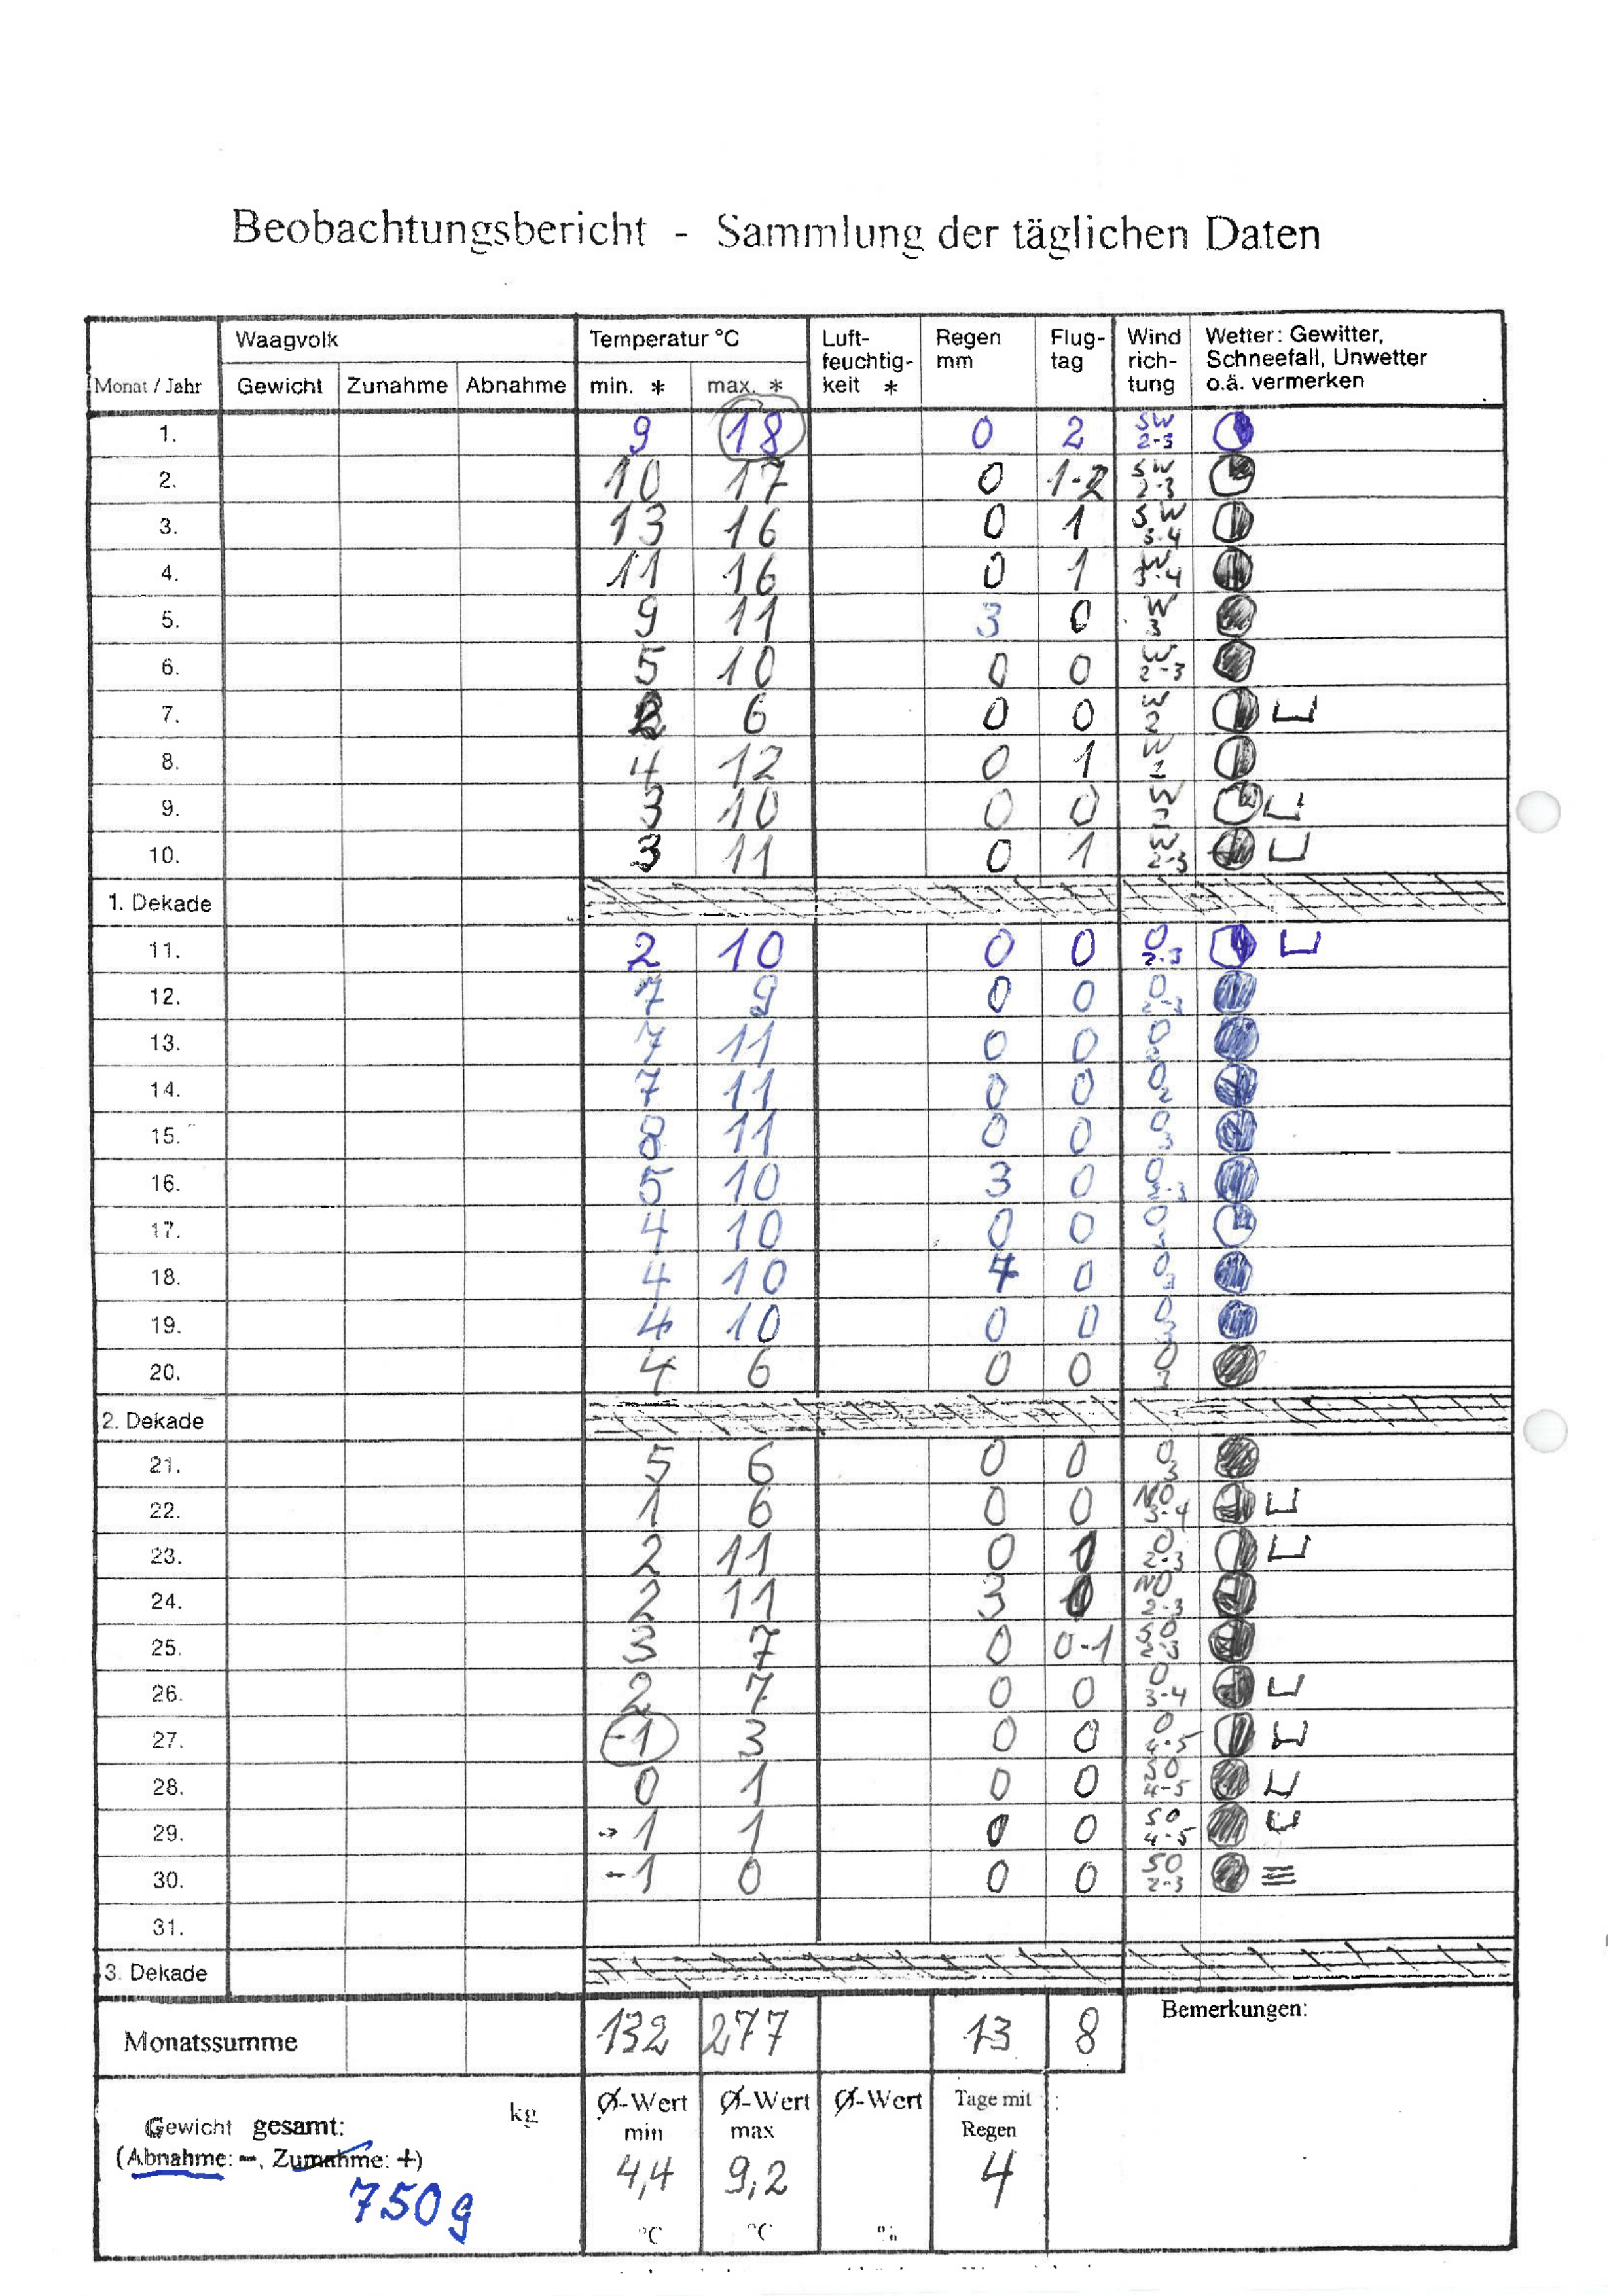 Beobachtungsbericht - Sammlung der täglichen Daten
Monat / Jahr Waagvolk Temperatur °C Luft-feuchtig-keit * Regen mm Flug-tag Wind rich-tung Wetter: Gewitter, Schneefall, Unwetter o.ä. vermerken
Gewicht Zunahme Abnahme min. * max. *
1. 9 18 0 2 SW 2-3
2. 10 17 0 1-2 SW 2-3
3. 13 16 0 1 SW 3-4
4. 11 16 0 1 W 3-4
5. 9 11 3 0 W 3
6. 5 10 0 0 W 2-3
7. 6 0 0 W 2
8. 4 12 0 1 W 2
9. 3 10 0 0
10. 3 11 0 1 W 2-3
1. Dekade
11. 2 10 0 0 O 2-3
12. 7 9 0 0 O 2-3
13. 7 11 0 0 O
14. 7 11 0 0 O 2
15. 8 11 0 0 O 3
16. 5 10 3 0 O 2-3
17. 4 10 0 0 O
18. 4 10 4 0 O 3
19. 4 10 0 0 O 3
20. 4 6 0 0 O 3
2. Dekade
21. 5 6 0 0 O 3
22. 1 6 0 0 NO 3-4
23. 2 11 0 1 O 2-3
24. 2 11 3 NO 2-3
25. 3 7 0 0-1 SO 2-3
26. 2 7 0 0 O 3-4
27. -1 3 0 0 O 4-5
28. 0 1 0 0 SO 4-5
29. -1 1 0 0 SO 4-5
30. -1 0 0 0 SO 2-3
31.
3. Dekade
Monatssumme 132 277 13 8 Bemerkungen:
Gewicht gesamt: kg Ø-Wert min Ø-Wert max Ø-Wert Tage mit Regen
(Abnahme: -, Zunahme: +) 4,4 9,2 4
750g
°C °C %